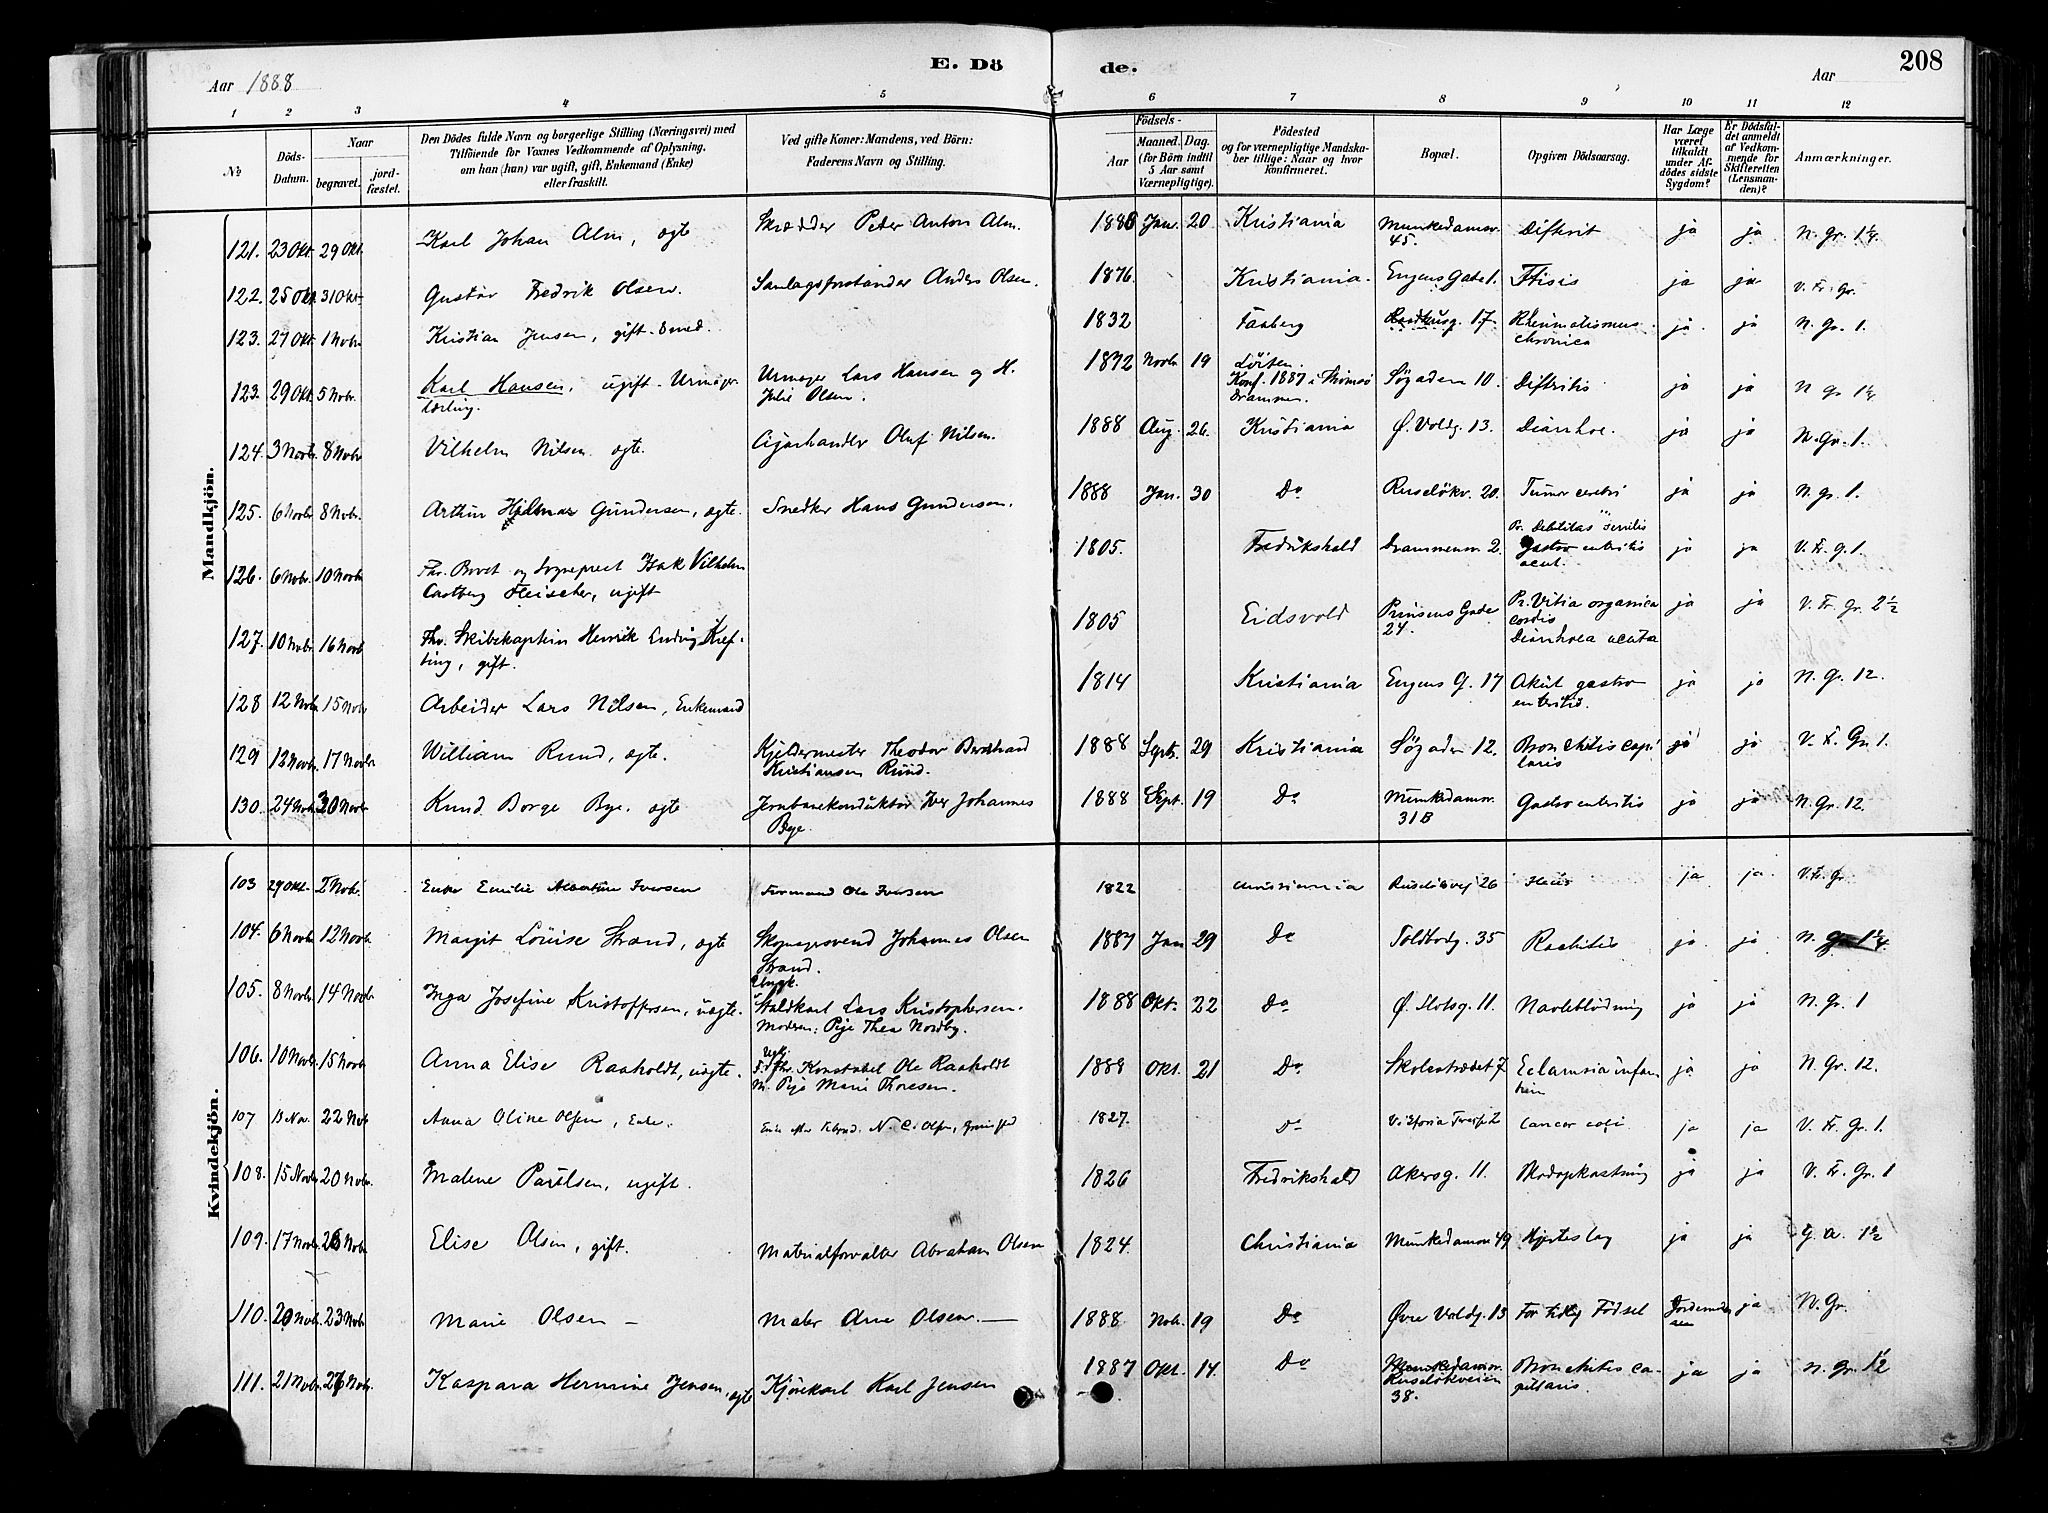 Aar 1888
E. Dö
de.
Aar
208
1 2 3 4 5 6 7 8 9 10 11 12
№
Döds-Datum.
Naar
begravet.
jord-fæstet.
Den Dödes fulde Navn og borgerlige Stilling (Næringsvei) med
Tilföiende for Voxnes Vedkommende af Oplysning,
om han (hun) var ugift, gift, Enkemand (Enke)
eller fraskilt.
Ved gifte Koner: Mandens, ved Börn:
Faderens Navn og Stilling.
Födsels-
Aar
Maaned. Dag.
(for Börn indtil
5 Aar samt
Værnepligtige).
Födested
og for værnepligtige Mandska-
ber tillige: Naar og hvor
konfirmeret.
Bopæl.
Opgiven Dödsaarsag.
Har Læge
været
tilkaldt
under Af-
dödes sidste
Sygdom?
Er Dödsfal-
det anmeldt
af Vedkom-
mende for
Skifteretten
(Lensman-
den)?
Anmærkninger.
Mandkjön.
121. 23 Okt. 29 Okt. Karl Johan Alm, ægte Skrædder Peter Anton Alm. 1886 Jan. 20 Kristiania Munkedamsv. 45. Difterit ja ja N. Gr. 1 1/4.
122. 25 Okt. 31 Okt. Gustav Fredrik Olsen. Samlagsforstander Anders Olsen. 1876 Kristiania. Engens Gade 1. Ftisis ja ja V. Fr. Gr.
123. 27 Okt. 1 Novbr. Kristian Jensen, gift. Smed. 1832 Faaberg Raadhusg. 17. Rheumatismus chronica ja ja N. Gr. 1.
123. 29 Okt. 5 Nobr. Karl Hansen, ugift. Urmager lærling. Urmager Lars Hansen og H. Julie Olsen. 1872 Novbr 19 Løiten. Konf. 1887 i Strømsø Drammen. Søgaden 10. Difteritis ja ja N gr 1 1/4
124. 3 Novbr. 8 Novbr Vilhelm Nilsen ægte. Cigarhandler Oluf Nilsen. 1888 Aug. 26. Kristiania Ø. Voldg. 13. Diarrhoe. ja ja N. Gr. 1.
125. 6 Novbr 8 Nobr. Arthur Hjelmar Gundersen, ægte. Snedker Hans Gundersen. 1888 Jan. 30 Do Ruseløkv. 20. Tumor cerebri ja ja N. gr. 1.
126. 6 Nobr. 10 Novbr Fhv. Provst og Sogneprest Isak Vilhelm Castberg Fleischer, ugift 1805. Fredrikshald Drammensv. 2. Pr. Debilitas senilis Gastro enteritis acut. ja ja V. Fr. g. 1.
127. 10 Nobr. 16 Novbr Fhv. Skibskaptein Henrik Ludvig Kref-ting, gift. 1805 Eidsvold Prinsens Gade 24. Pr. Vitia organica cordis Diarrhoea acuta ja ja V. Fr. Gr. 2 1/2
128 12 Nobr. 15 Nobr Arbeider Lars Nilsen, Enkemand 1814 Kristiania Engens G. 17 Akut gastro enteritis. ja ja N. Gr. 12.
129 12 Novbr. 17 Novbr William Rund, ægte. Kjeldermester Theodor Kristiansen Rund. 1888 Septr. 29 Kristiania Søgaden 12. Bronchitis capi laris ja ja V. Fr. Gr. 1.
130. 24 Nobr 30 Novbr Knud Borge Bye. ægte Jernbanekonduktør Iver Johannes Bye. 1888 Sept. 19 Do Munkedamsv. 31 B Gastro enteritis ja ja N. Gr. 12.
Kvindekjön.
103 29 Okt. 5 Nobr. Enke Emilie Albertine Iversen Formand Ole Iversen 1822 Christiania Ruseløkvej 26 ja ja. V. Fr. Gr
104. 6 Novbr 12 Novbr Margit Louise Strand, ægte Skomagersvend Johannes Olsen Strand. 1887 Jan 29 Do Toldbodg. 35 Rachitis ja ja N. Gr. 1 1/4
105. 8 Novbr 14 Novbr Inga Josefine Kristoffersen, uægte. Staldkarl Lars Kristophersen. Moderen: Pige Thea Nordby. 1888 Okt. 22 Do Ø. Slotsg. 11. Navleblödning ja ja N. Gr. 1
106. 10 Novbr. 15 Novbr Anna Elise Raaholdt, uægte. Konstabel Ole Raaholdt M. Pige Marie Thoresen. 1888 Okt. 21 Do Skolestrædet 7 Eclamsia infan-tum ja ja N. Gr. 12.
107 13 Nov. 22 Nob Anna Oline Olsen, Enke. Enke efter N. C. Olsen, Grimstad 1827. Do Victoria Terasse 2 cancer coli ja ja V. Fr. Gr. 1.
108. 15 Novbr 20 Nobr. Malene Paulsen, ugift. 1826 Fredrikshald Akersg. 11. Blodopkastning ja ja V. Fr. Gr. 1
109. 17 Novbr. 26 Nobr Elise Olsen, gift. Materialforvalter Abraham Olsen 1824. Christiania Munkedamsv 49 Hjerteslag ja ja G. A. 1 1/2
110. 20 Nobr. 23 Nobr Marie Olsen — Maler Olsen. — 1888 Nobr. 19 Do Øvre Voldg. 13 For tidlig Födsel Jordemoderen ja N. Gr.
111. 21 Nobr. 26 Nobr. Kaspara Hermine Jensen, ægte Kjørekarl Karl Jensen 1887 Okt. 14. Do Munkedamsv. Ruseløkveien 38. Bronchitis ca-pillaris. ja ja N. Gr. 1 1/2